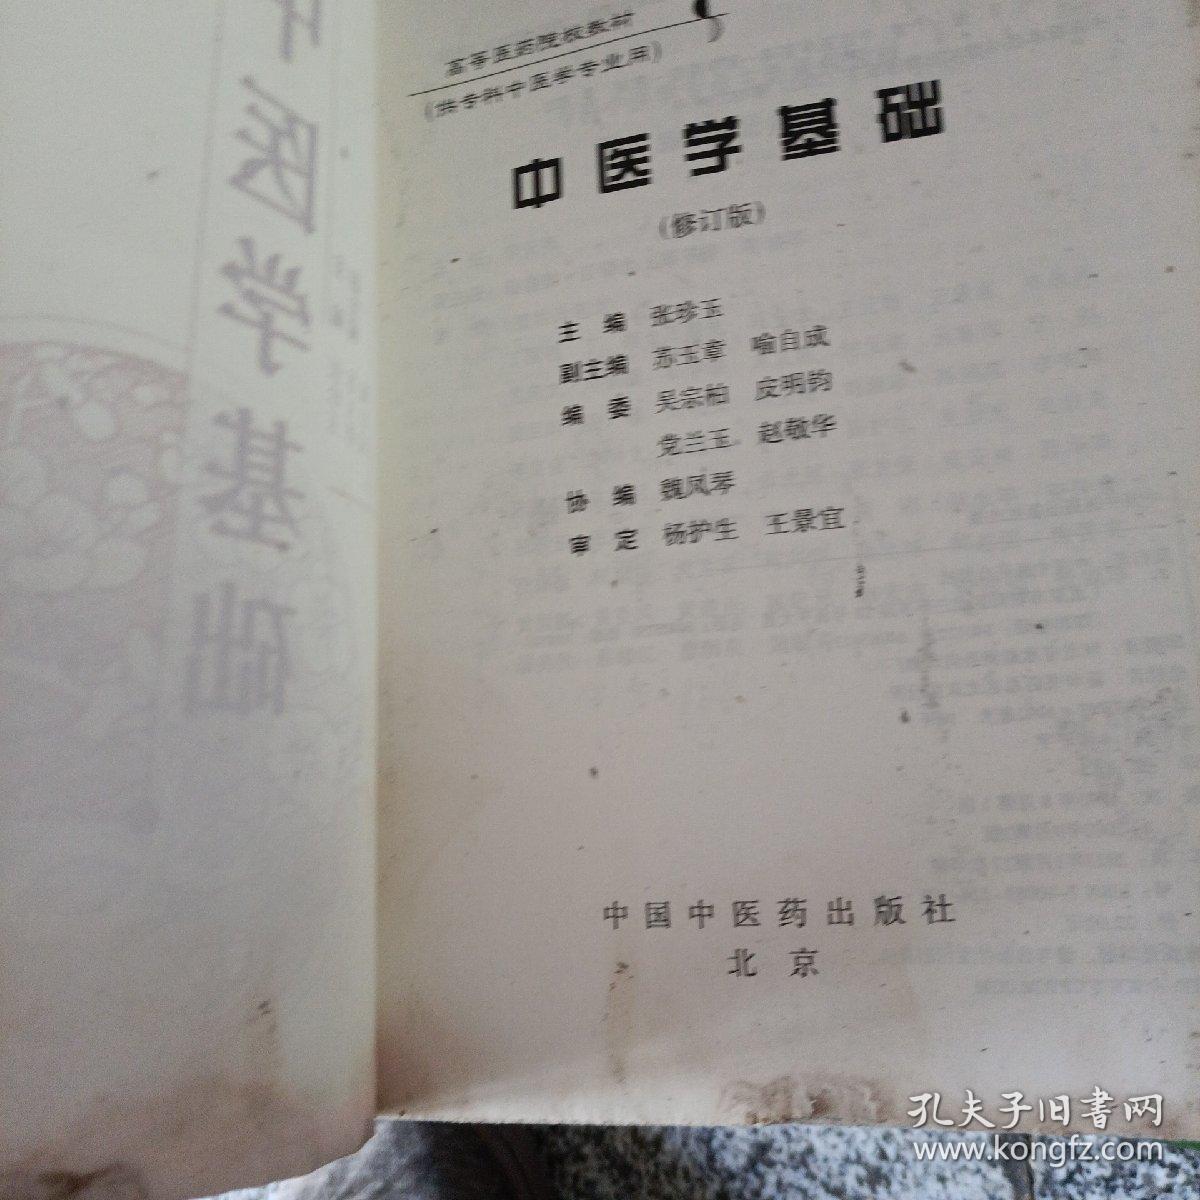 高等医药院校教材
(供专科中医学专业用)
中医学基础
(修订版)
主 编 张珍玉
副主编 苏玉章 喻自成
编 委 吴宗柏 皮明钧
党兰玉 赵敬华
协 编 魏凤琴
审 定 杨护生 王景宜
中国中医药出版社
北 京
中医学基础
孔夫子旧書网
www.kongfz.com